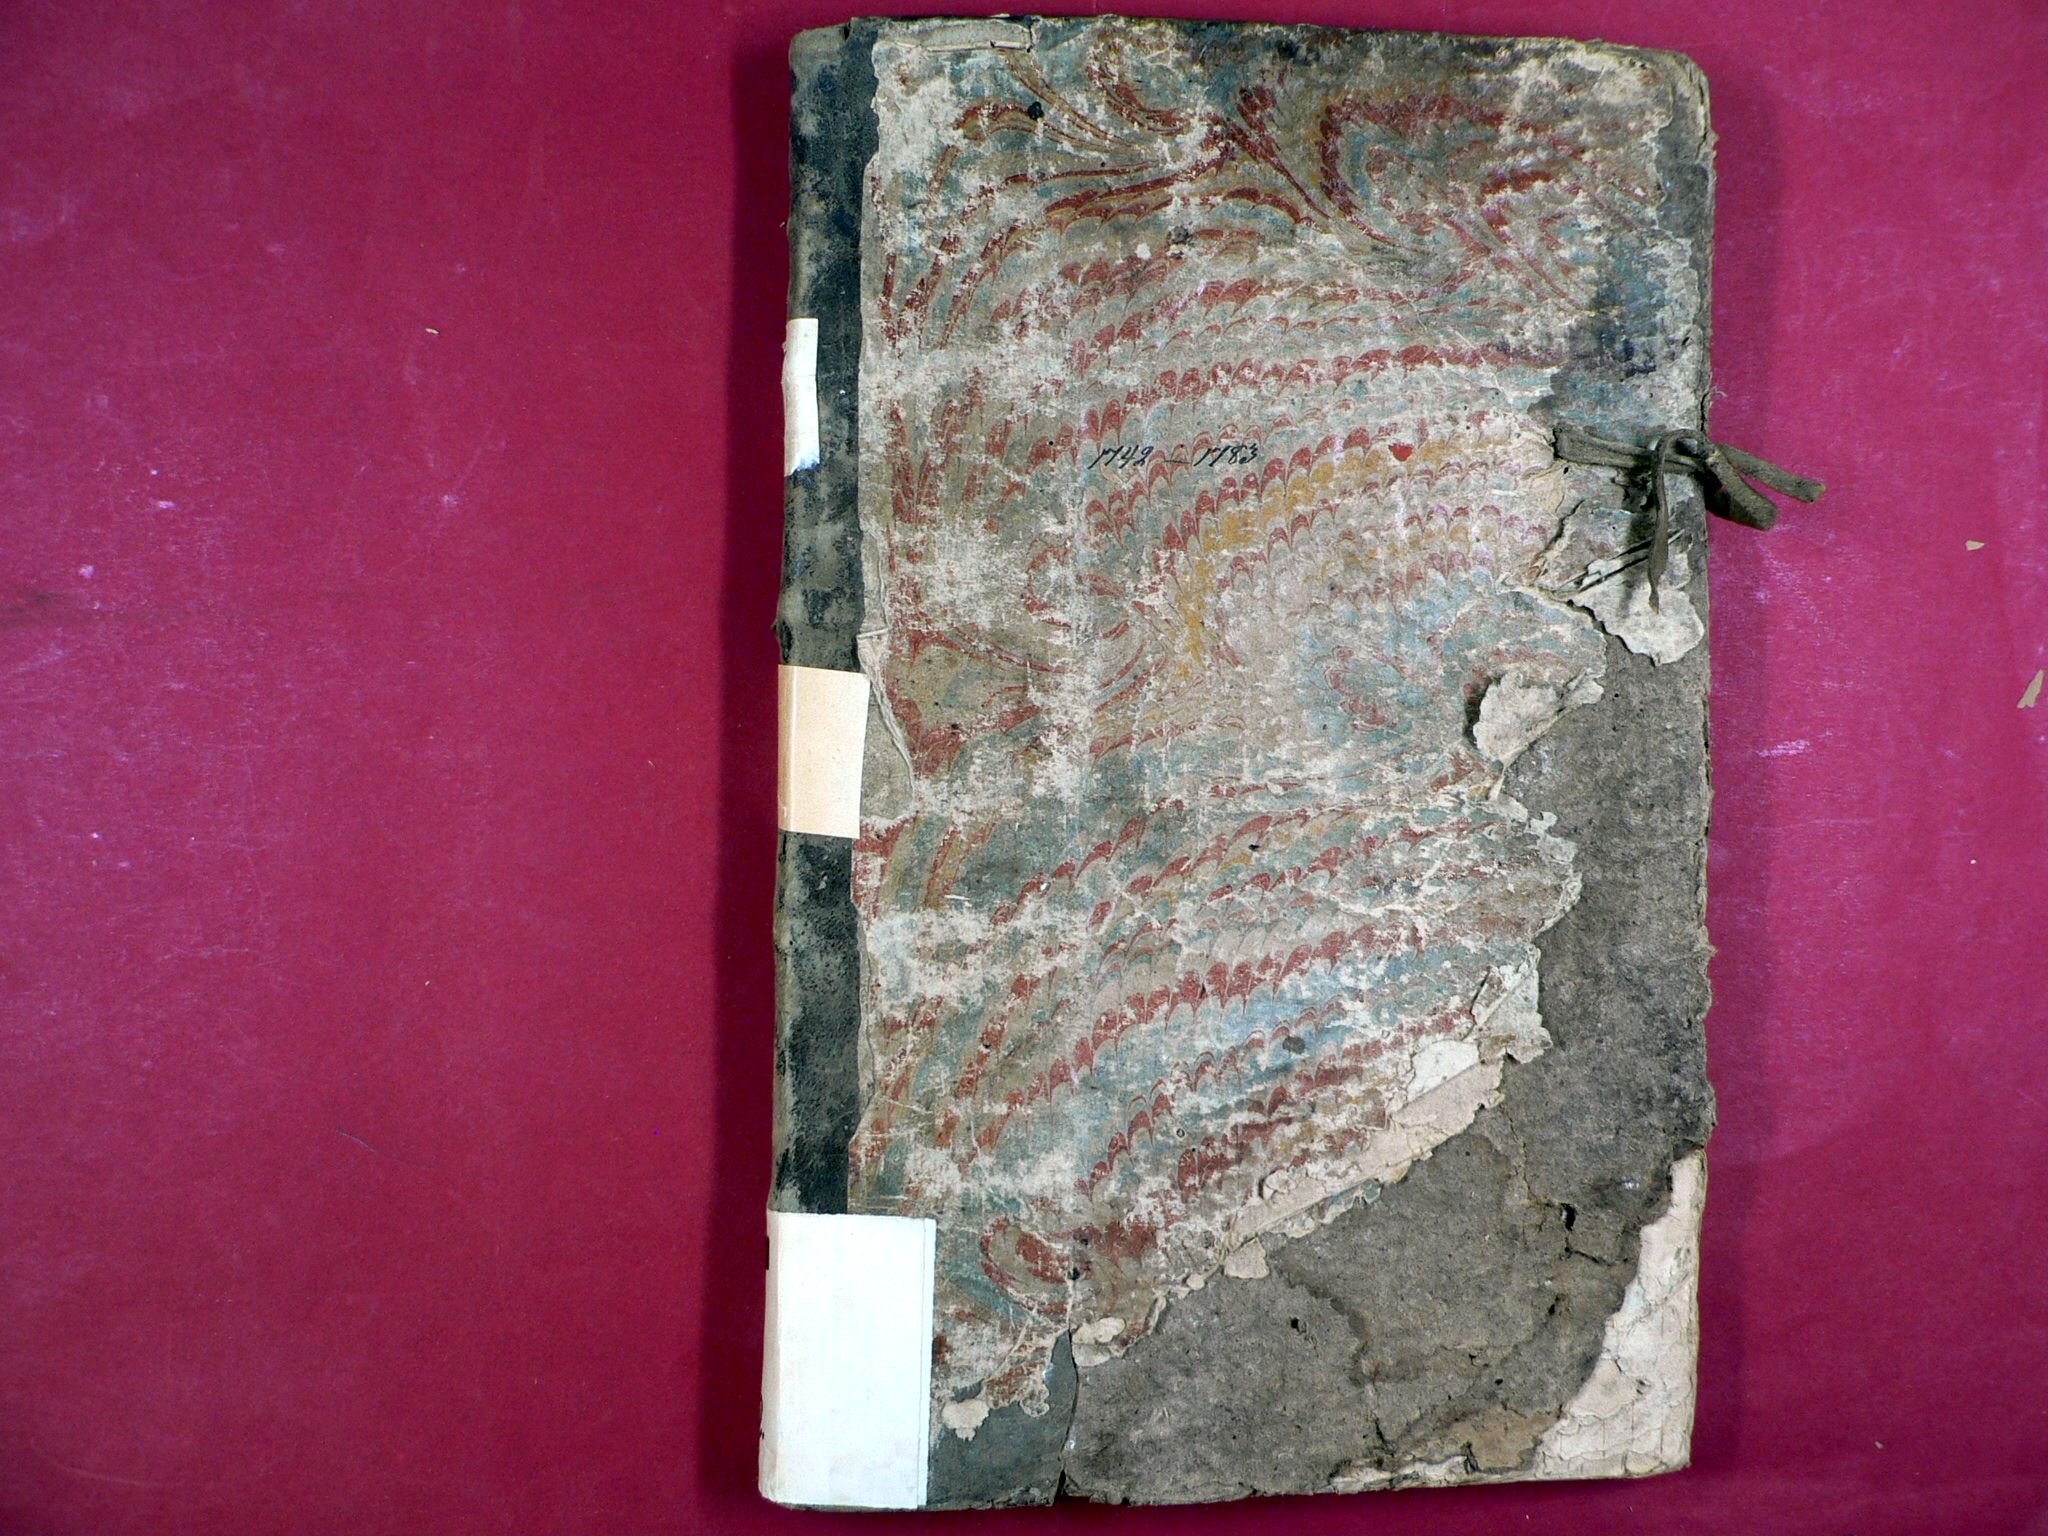 1742 — 1783